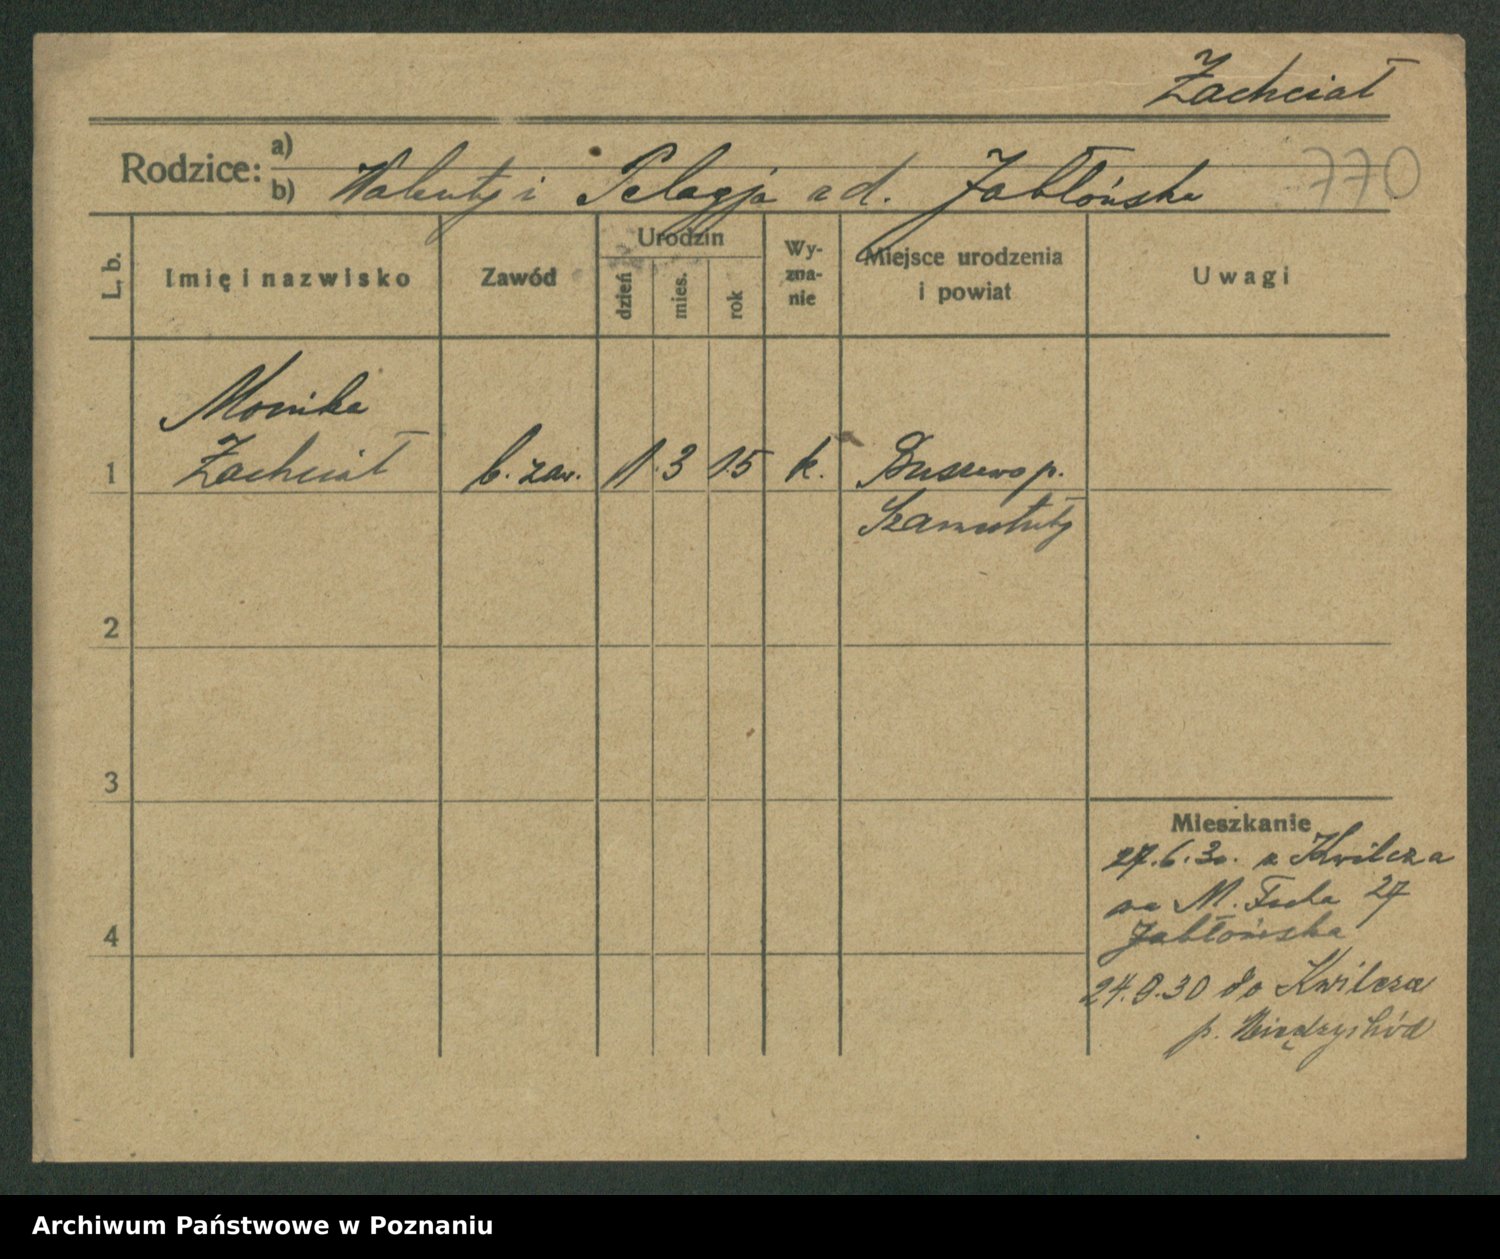 Zachciał
Rodzice: a)
b) Walenty i Pelagja z d. Jabłońska
770
L. b.
Imię i nazwisko
Zawód
Urodzin
dzień
mies.
rok
Wy-
zna-
nie
Miejsce urodzenia
i powiat
Uwagi
Monika
1 Zachciał b. zaw. 1. 3 15 k. Buszewo p.
Szamotuły
2
3
Mieszkanie
27.6.30. z Kwilcza
na M. Focha 27
4 Jabłońska
24.9.30 do Kwilcza
p. Międzychód
Archiwum Państwowe w Poznaniu